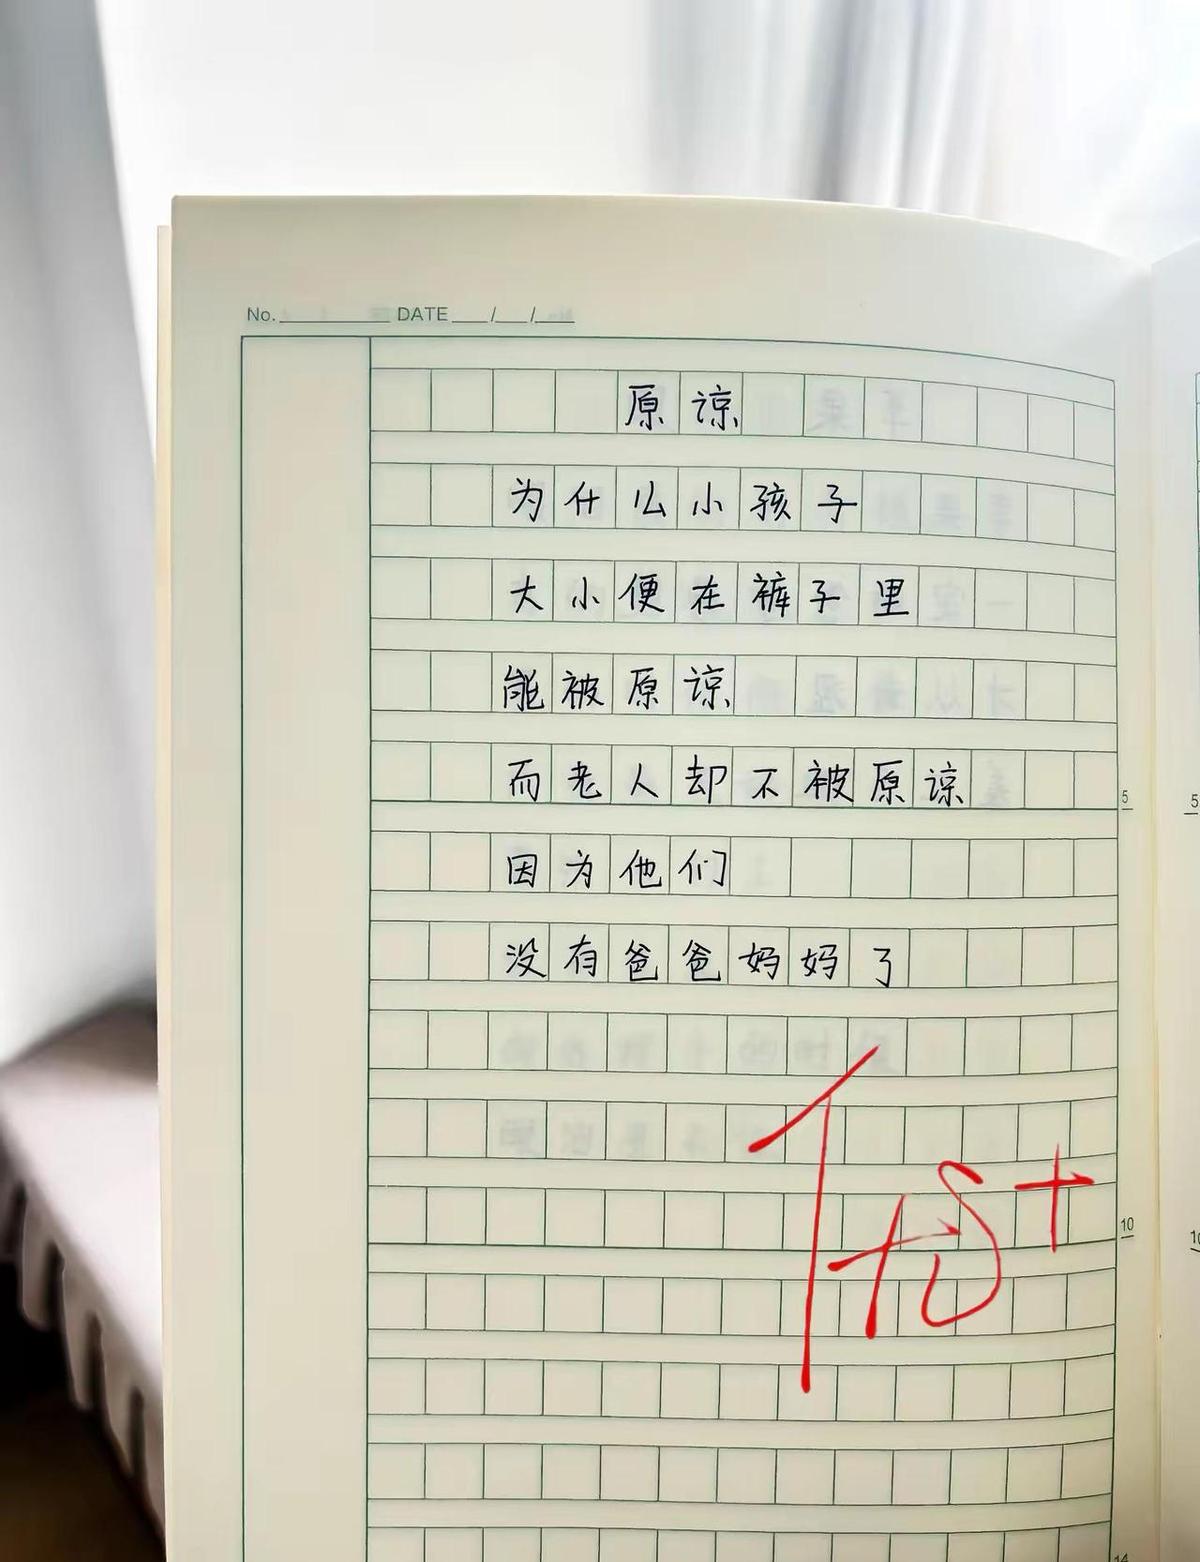 No. DATE / /
原谅
为什么小孩子
大小便在裤子里
能被原谅
而老人却不被原谅
5
5
因为他们
没有爸爸妈妈了
优+
10
10
14